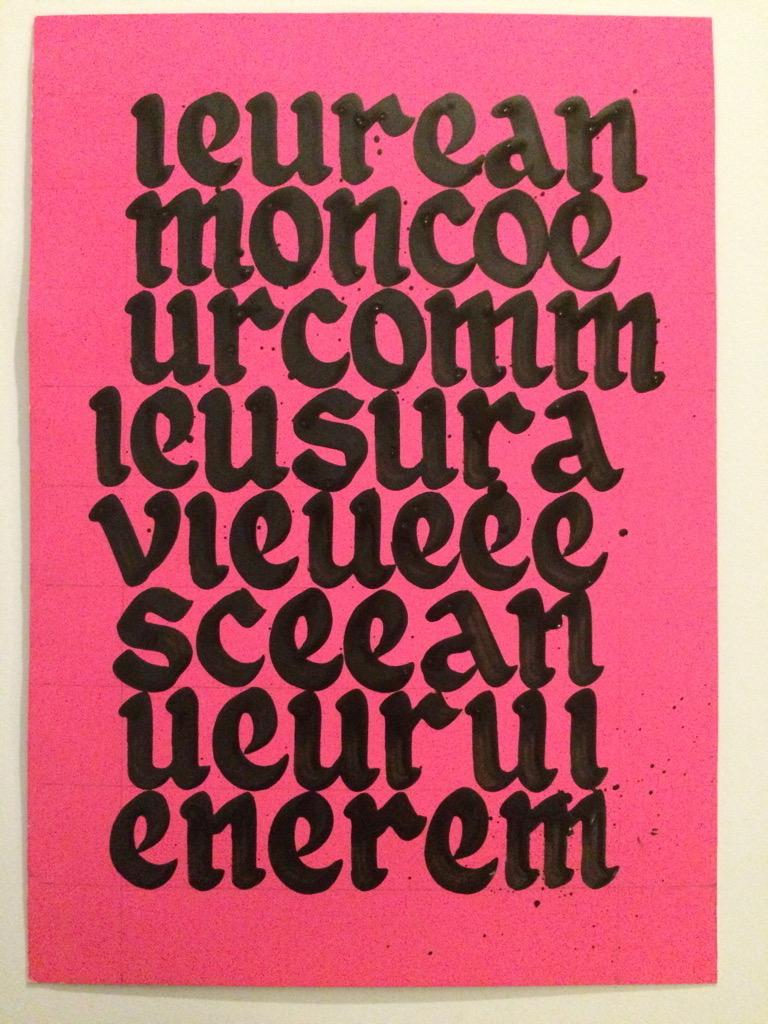 ieurean
moncoe
urcomm
ieusura
vieueee
sceean
ueurui
enerem